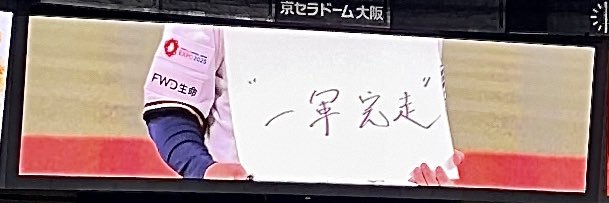 京セラドーム大阪
EXPO2025
FWD生命
"一軍完走"